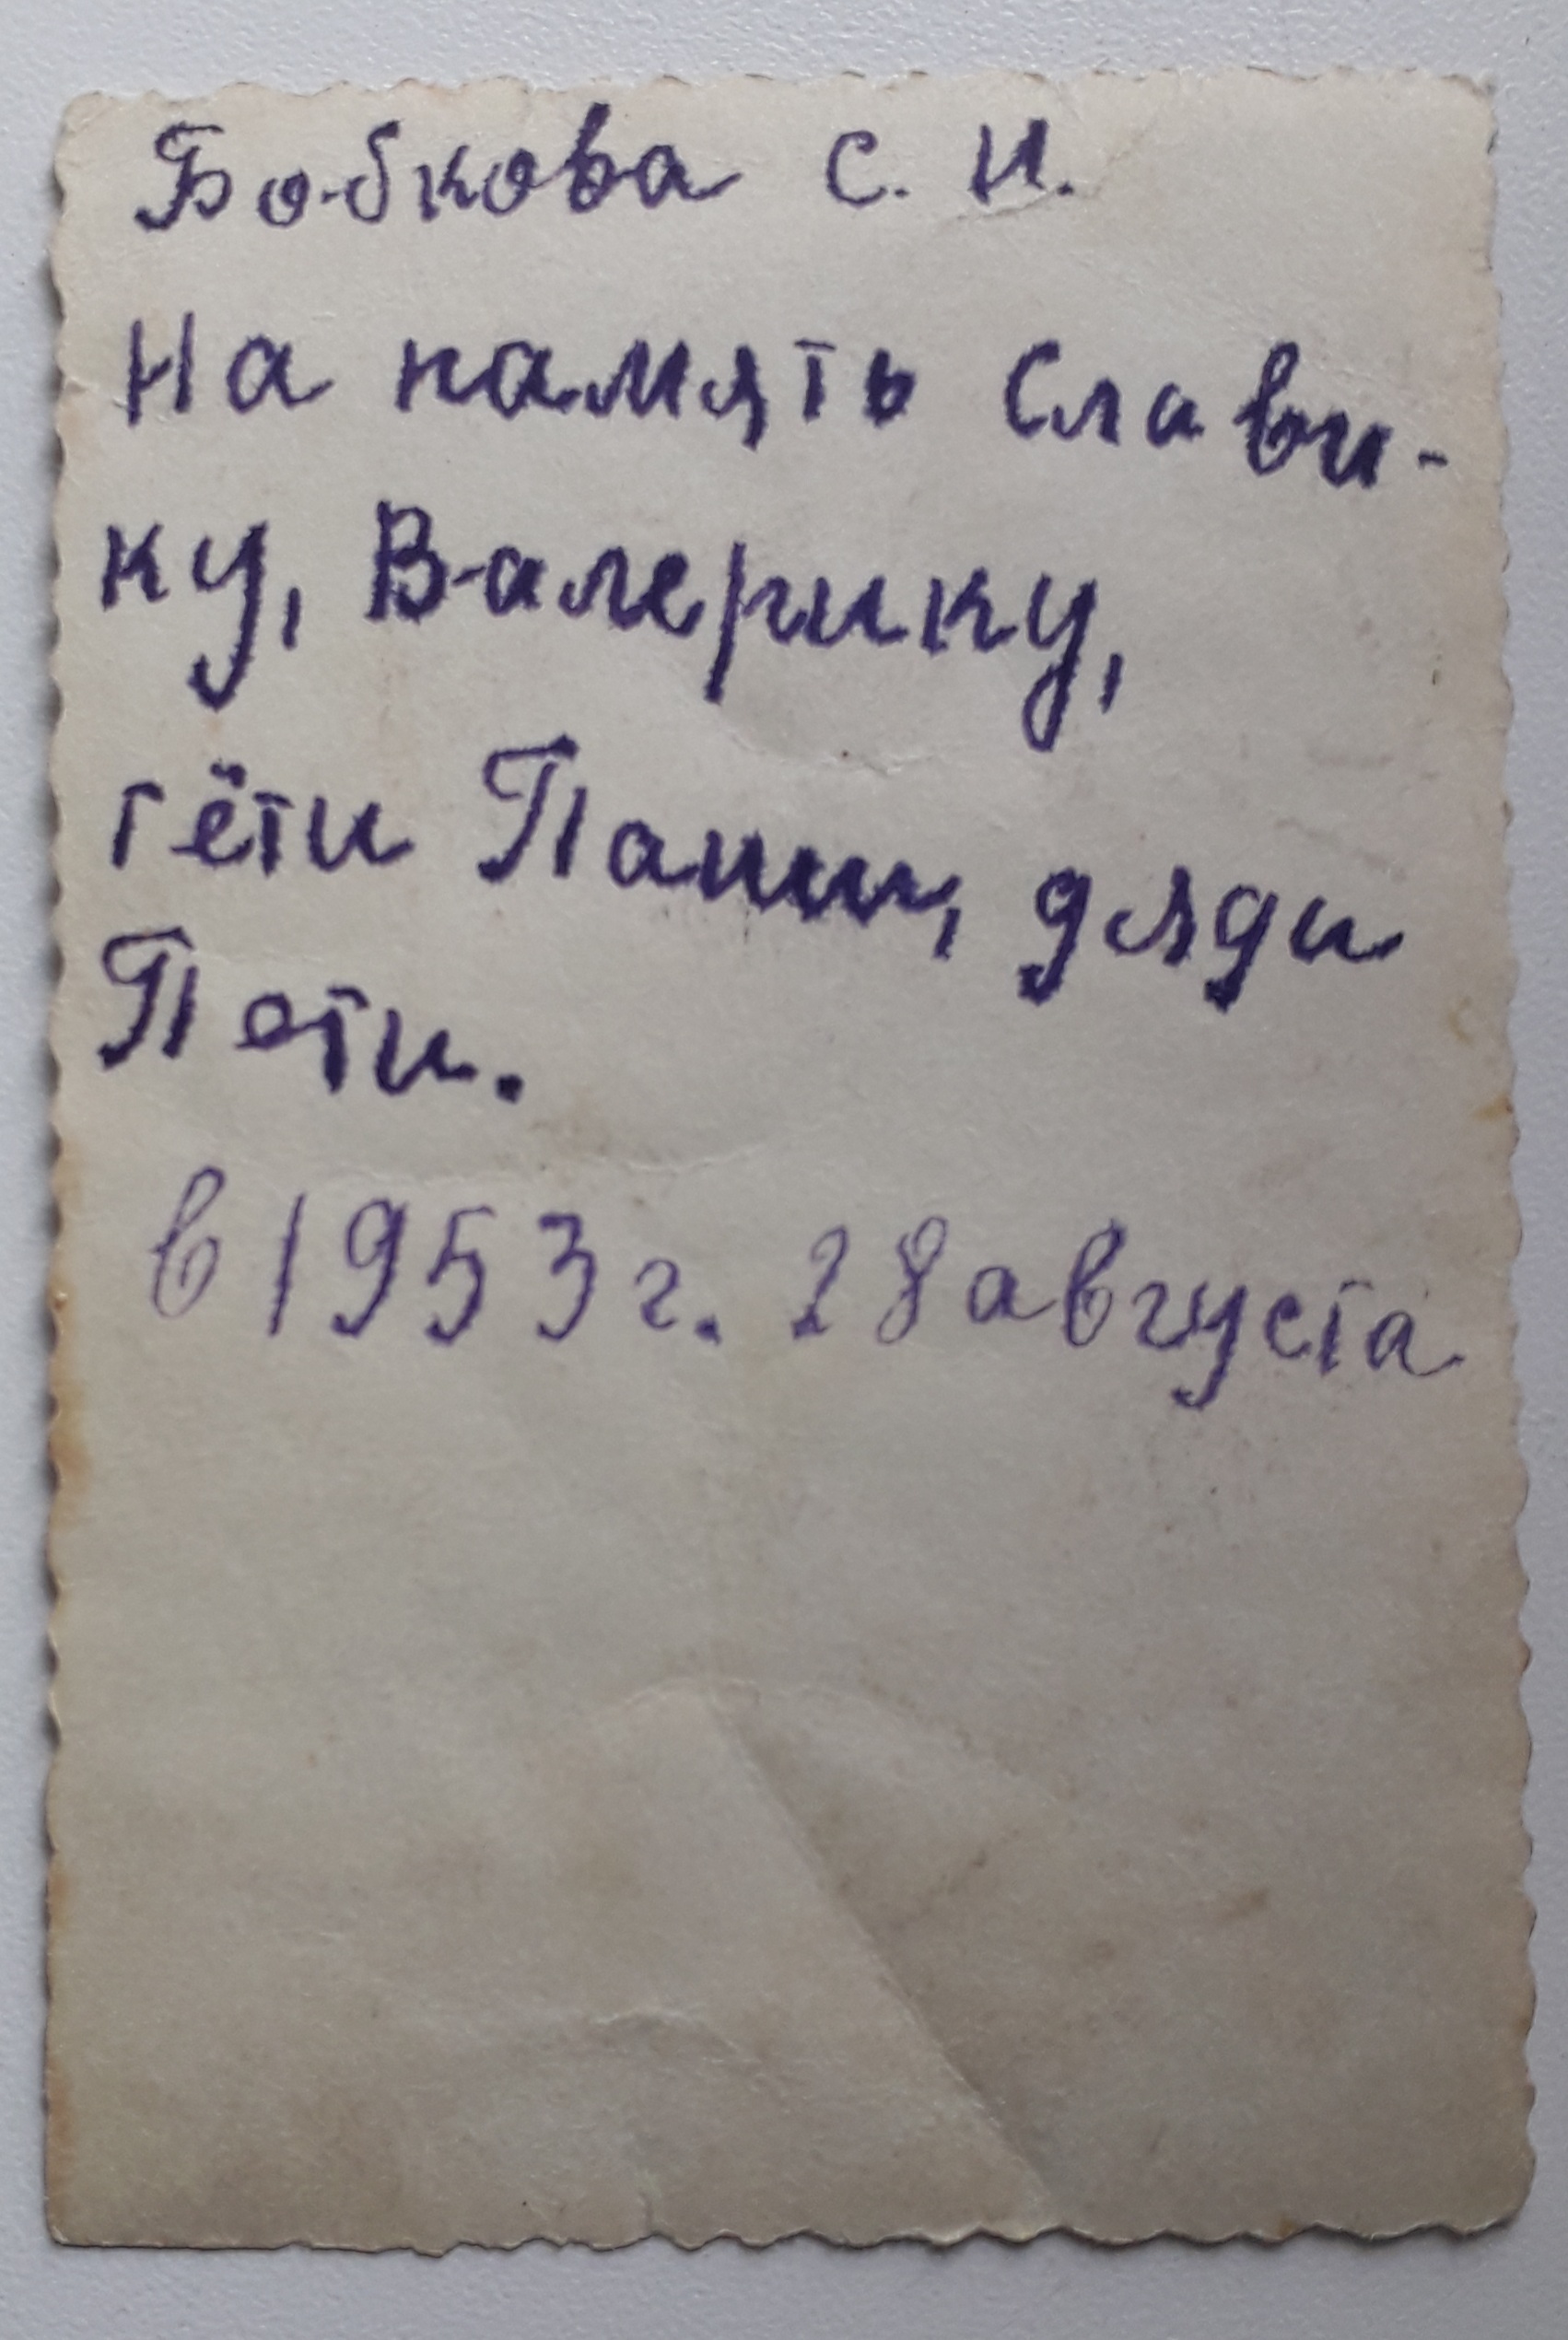 Бобкова С. И.
На память Слави-
ку, Валерику,
тёти Паши, дяди
Пети.
в 1953 г. 28 августа